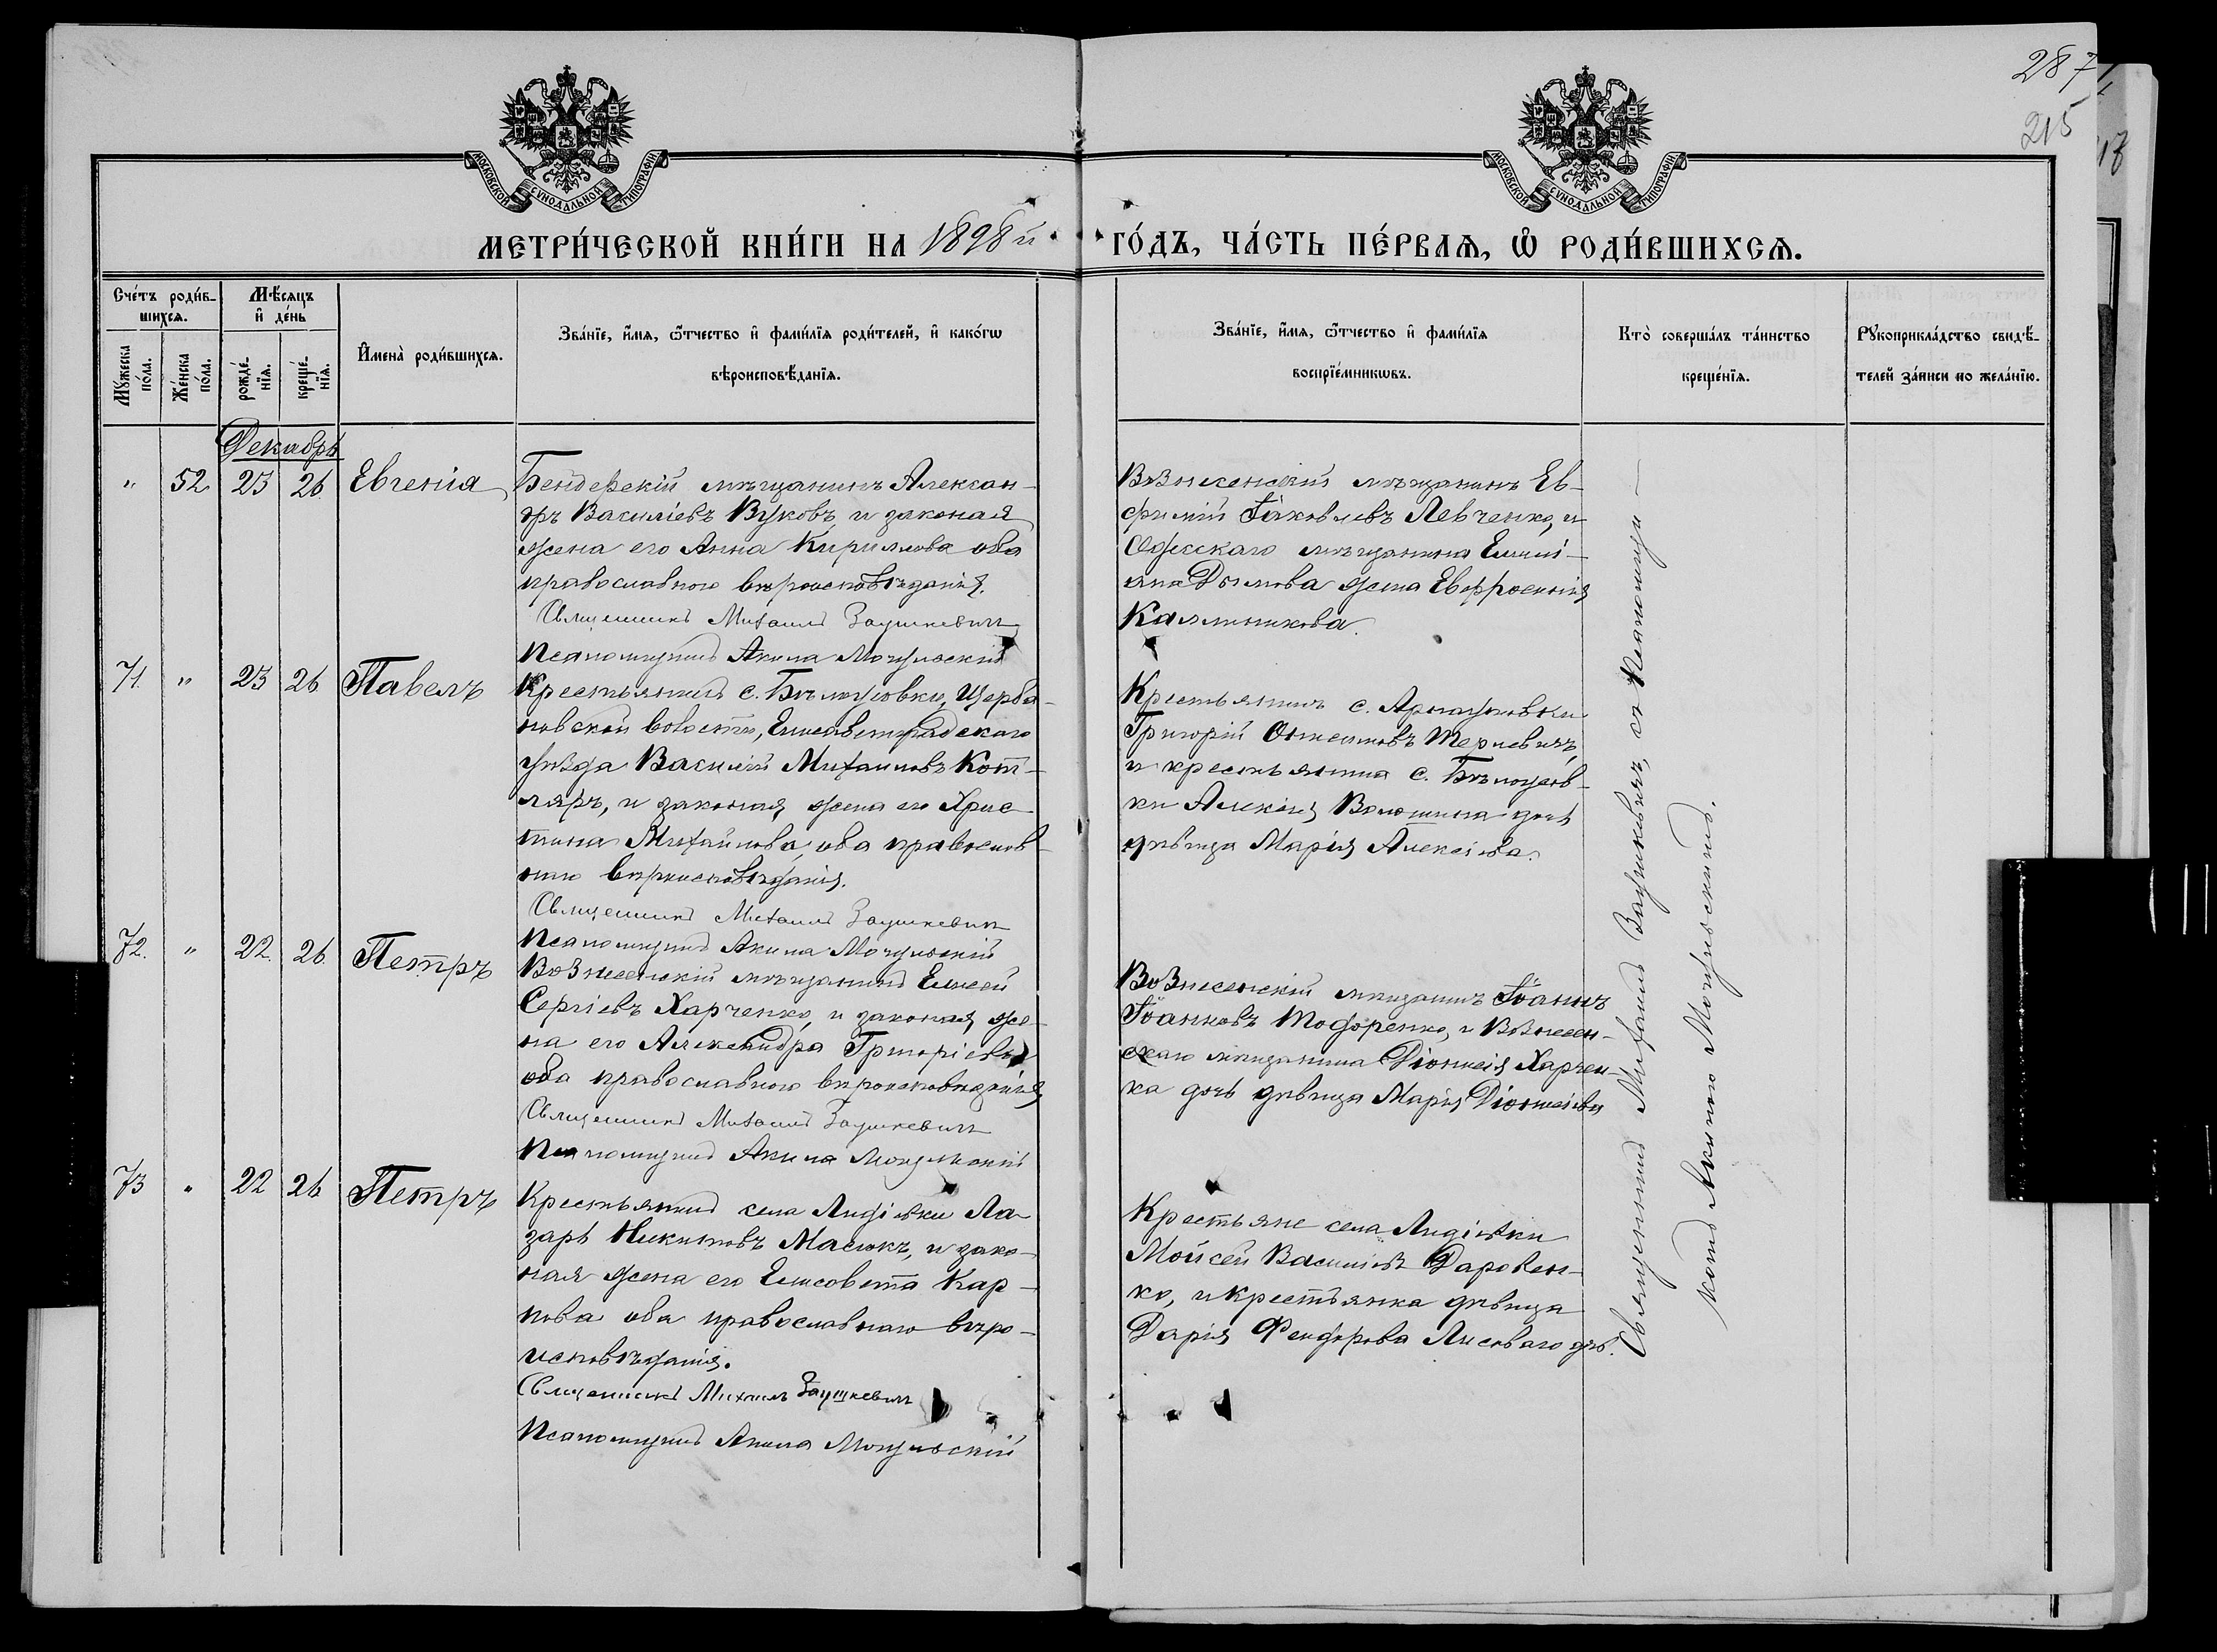 287
215
МОСКОВСКОЙ СѴНОДАЛЬНОЙ ТИПОГРАФІИ
МОСКОВСКОЙ СѴНОДАЛЬНОЙ ТИПОГРАФІИ
МЕТРИ́ЧЕСКОЙ КНИ́ГИ НА 1898 й ГО́ДЪ, ЧА́СТЬ ПЕ́РВАЯ, Ѡ҆ РОДИ́ВШИХСЯ.
Сче́тъ роди́в-
шихся.
Мѣ́сяцъ
и҆ де́нь
Мꙋ́жеска по́ла.
Же́нска по́ла.
рожде́-
нїя.
креще́-
нїя.
И҆мена̀ роди́вшихся.
Зва́нїе, и҆́мя, ѻ҆́тчество и҆ фами́лїя роди́телей, и҆ како́гѡ
вѣроисповѣ́данїя.
Зва́нїе, и҆́мя, ѻ҆́тчество и҆ фами́лїя
воспрїе́мникѡвъ.
Кто̀ соверша́лъ та́инство
креще́нїя.
Рꙋкоприкла́дство свидѣ́-
телей за́писи по жела́нїю.
Декабрь
" 52 23 26 Евгенія
Бендерскій мѣщанинъ Алексан-
дръ Василіевъ Вуковъ, и законая
жена его Анна Кириллова оба
православного вѣроисповѣданія.
Священникъ Михаилъ Заушкевичъ
Псаломщикъ Акила Могульскій
Вознесенскій мѣщанинъ Ев-
фимій Іаковлевъ Левченко, и
Одесскаго мѣщанина Емилі-
ана Дымова жена Евфросинія
Каллиникова.
71. " 23 26 Павелъ
Крестьянинъ с. Бѣлоусовки, Щерба-
новской волости, Елисаветградскаго
уѣзда Василій Михаиловъ Кот-
ляръ, и законая жена его Хрис-
тина Михаилова, оба православ-
наго вѣроисповѣданія.
Священникъ Михаилъ Заушкевичъ
Псаломщикъ Акила Могульскій
Крестьянинъ с. Арнаутовки
Григорій
и крестьянина с. Бѣлоусов-
ки Алексія Волошина дочь
дѣвица Марія Алексіева.
72. " 22. 26. Петръ
Вознесенскій мѣщанинъ Елисей
Сергіевъ Харченко, и законая же-
на его Александра Григоріева
оба православного вѣроисповѣданія
Священникъ Михаилъ Заушкевичъ
Псаломщикъ Акила Могульскій
Вознесенскій мѣщанинъ Іоаннъ
Іоанновъ Тодоренко, и Вознесен-
скаго мѣщанина Діонисія Харчен-
ка дочь дѣвица Марія Діонисіева
73 " 22 26 Петръ
Крестьянинъ села Лидіевки Ла-
зарь Никитовъ Масюкъ, и зако-
ная жена его Елисовета Кар-
пова оба православнаго вѣро-
исповѣданія.
Священникъ Михаилъ Заушкевичъ
Псаломщикъ Акила Могульскій
Крестьяне села Лидіевки
Мойсей Василіевъ
ко, и крестьянка дѣвица
Дарія Феодорова Лисоваго дч.
Священникъ Михаилъ Заушкевичъ, съ Псаломщи-
комъ Акилою Могульскимъ.